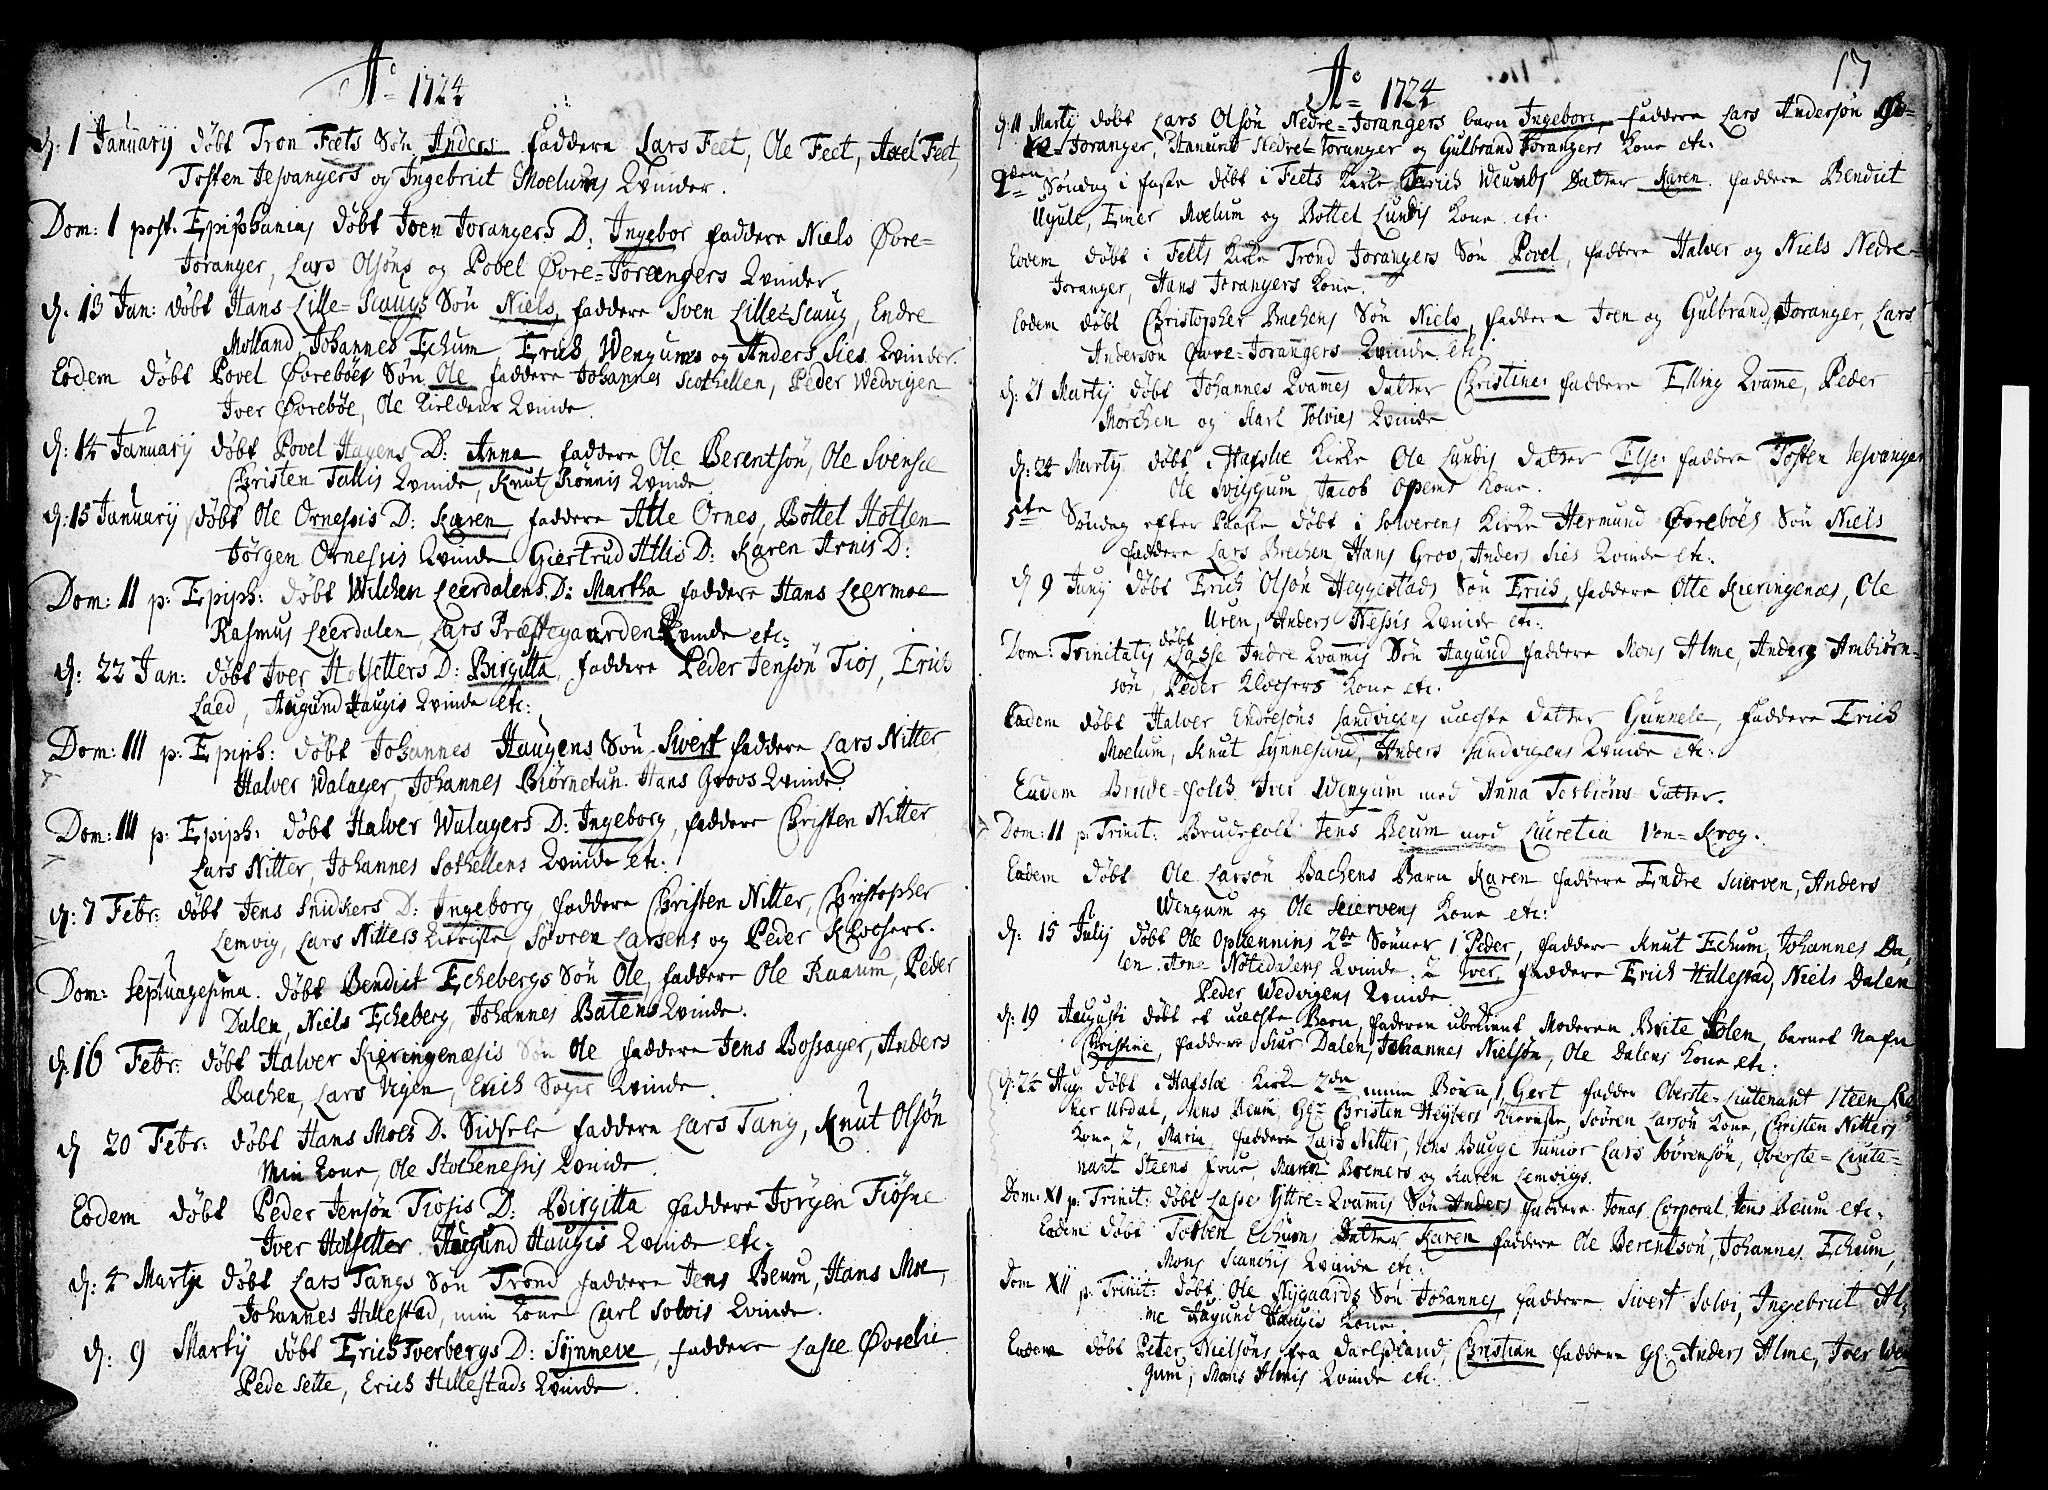 Ao 1724
d: 1 Januarij döbt Tron Fæts Sön Anders faddere Lars Feet, Ole Feet, Axel Feet,
Tosten Jesvangers og Ingebrict Moelums Qvinder.
Dom: 1 post. Epiphanias döbt Joen Jorangers D: Ingebor faddere Niels Øvre=
Joranger, Lars Olsöns og Povel Øvre=Jorangers Qvinder
d. 13 Jan: döbt Hans Lille=Scaugs Sön Niels, faddere Sven Lille=Scaug, Endre
Molland Johannes Echum, Erich Wengums og Anders Sies Qvinder.
Eodem döbt Povel Øvreböes Sön Ole faddere Johannes Scothellen, Peder Wedvigen
Iver Øvreböe, Ole Qvinde.
d: 14 Januarij döbt Povel Hagens D: Anna faddere Ole Berentsön, Ole Svensæ
Christen Tallis Qvinde, Knut Rönnis Qvinde
d: 15 Januarij döbt Ole Ornessis D: Karen, faddere Atle Ornes, Bottel Holten
Jörgen Ornessis Qvinde, Giertrud Atlis D: Karen Arnis D:
Dom: II p: Epiph: döbt Wilchen Leerdalens D: Martha faddere Hans Leermoe
Rasmus Leerdalen, Lars Præstegaarden Qvinde etc:
d: 22 Jan: döbt Iver Hofsetters D: Birgitta, faddere Peder Jensön Tios, Erich
Laed, Augund Haugis Qvinde etc:
Dom: III p: Epiph: döbt Johannes Haugens Sön Sivert faddere Lars Nitter
Halver Walager, Johannes Biörnetun. Hans Groos Qvinde.
Dom: III p: Epiph: döbt Halver Walagers D: Ingeborg, faddere Christen Nitter
Lars Nitter, Johannes Sothellens Qvinde etc:
d: 7 Febr: döbt Jens Snidkers D: Ingeborg, faddere Christen Nitter, Christopher
Lemvig, Lars Nitters Kieriste, Sövren Larsens og Peder Klochers.
Dom: Septuagesima. döbt Bendict Echebergs Sön Ole, faddere Ole Raaum, Peder
Dalen, Niels Echeberg, Johannes Batens Qvinde.
d. 16 Febr: döbt Halver Kieringenæsis Sön Ole faddere Jens Bossager, Anders
Bachen, Lars Vigen, Erich Sogis Qvinde.
d 20 Febr: döbt Hans Moes D. Sidsele faddere Lars Tang, Knut Olsön
Min kone, Ole Stolhenessis Qvinde.
Eodem döbt Peder Jensön Tiosis D: Birgitta faddere Jörgen Fiösne
Iver Hofsetter. Haugund Haugis Qvinde etc:
d: 4 Martij döbt Lars Tangs Sön Trond faddere Jens Beum, Hans Moe,
Johannes Hillestad, min kone Carl Solvis Qvinde.
d: 9 Martij döbt Erich Tverbergs D: Synneve, faddere Lasse Øvrelie
Pede Sette, Erich Hillestads Qvinde.
17
Ao 1724
d: 11 Martij döbt Lars Olsön Nedre=Jorangers barn Ingeborg, faddere Lars Andersön
Joranger, Hanund Nedre=Joranger og Gulbrand Jorangers kone etc:
2den Söndag i faste döbt i Feets Kirke Erich Weumbs datter Karen. faddere Bendict
Ugule, Einer Moelum og Bottel Lundis kone etc.
Eodem döbt i Feets Kirke Trond Jorangers Sön Povel, faddere Halver og Niels Nedre=
Joranger, Hans Jorangers kone.
Eodem döbt Christopher Bachens Sön Niels, faddere Joen og Gulbrand Joranger, Lars
Andersön Øvre=Jorangers Qvinde etc:
d: 21 Martij döbt Johannes Qvames datter Christine: faddere Elling Qvame, Peder
Morchen og Karl Solvies Qvinde
d: 24 Martij döbt i Hafsloe Kirke Ole Lundis datter Else: faddere Tosten Jesvanger
Ole Sviggum, Jacob Opems kone.
5te Söndag efter Paaske döbt i Solverens Kirke Hermund Øvreböes Sön Niels
faddere Lars Brechen Hans Grov, Anders Sies Qvinde etc:
d 9 Junij döbt Erich Olsön Heggestads Sön Erich, faddere Otte Kieringenæs, Ole
Uren, Anders Nessis Qvinde etc:
Dom: Trinitatis döbt Lasse Indre Qvamis Sön Hagund faddere Mons Alme, Anders Ambiörn=
sön, Peder Klochers kone etc.
Eodem döbt Halver Endresöns Sandvigens uæchte datter Gunnele, faddere Erich
Moelum, Knut Lynnesund, Anders Sandvigens Qvinde etc:
Eudem Brude=folch Iver Wengum med Anna Torbiörns datter.
Dom: II p: Trinit: Brudefolk Jens Beum med Lucretia Von=Krog.
Eodem döbt Ole Larsön Bachens Barn Karen faddere Endre Skierven, Anders
Wengum og Ole Skiervens kone etc:
d: 15 Julij döbt Ole Ophennins 2de Sönner 1 Peder, faddere Knut Echum, Johannes Da,
len. Arne Notedalens Qvinde. 2 Iver faddere Erich Hillestad, Niels Dalen
Peder Wedvigens Qvinde
d: 19 Augusti döbt et uæchte Barn, faderen ubekient Moderen Brite Holen, barnet Nafn
Christine, faddere Siur Dalen, Johannes Nielsön, Ole Dalens kone etc:
d: 24 Aug: döbt i Hafsloe Kirke 2de mine Börn 1, Gert fadder Oberste=Lieutenant Steen,
her Urdal, Jens Beum, Gl: Christen Heybers Kierriste, Sovren Larsön kone, Christen Nitters
kone, 2, Marin faddere Lars Nitter, Jens Bugge Junior Lars Sörensön, Oberste=Lieute=
nant Steens frue, Maren Bremers og Karen Lemvigs.
Dom: XI p: Trinit: döbt Lasse Yttre=Qvamis Sön Anders faddere Jonas Corporal Jens Beum etc.
Eodem döbt Torben Echums datter Karen faddere Ole Berentsön, Johannes. Echum,
Mons Qvinde etc:
Dom XII p: Trinit: döbt Ole Nygaards Sön Johannes, faddere Sivert Solvi, Ingebrict Al,
me Hagund Haugis kone.
Eodem döbt Peter Nielsöns fra Christian faddere Gl: Anders Alme, Iver Wen
gum, Mons Almis Qvinde etc.